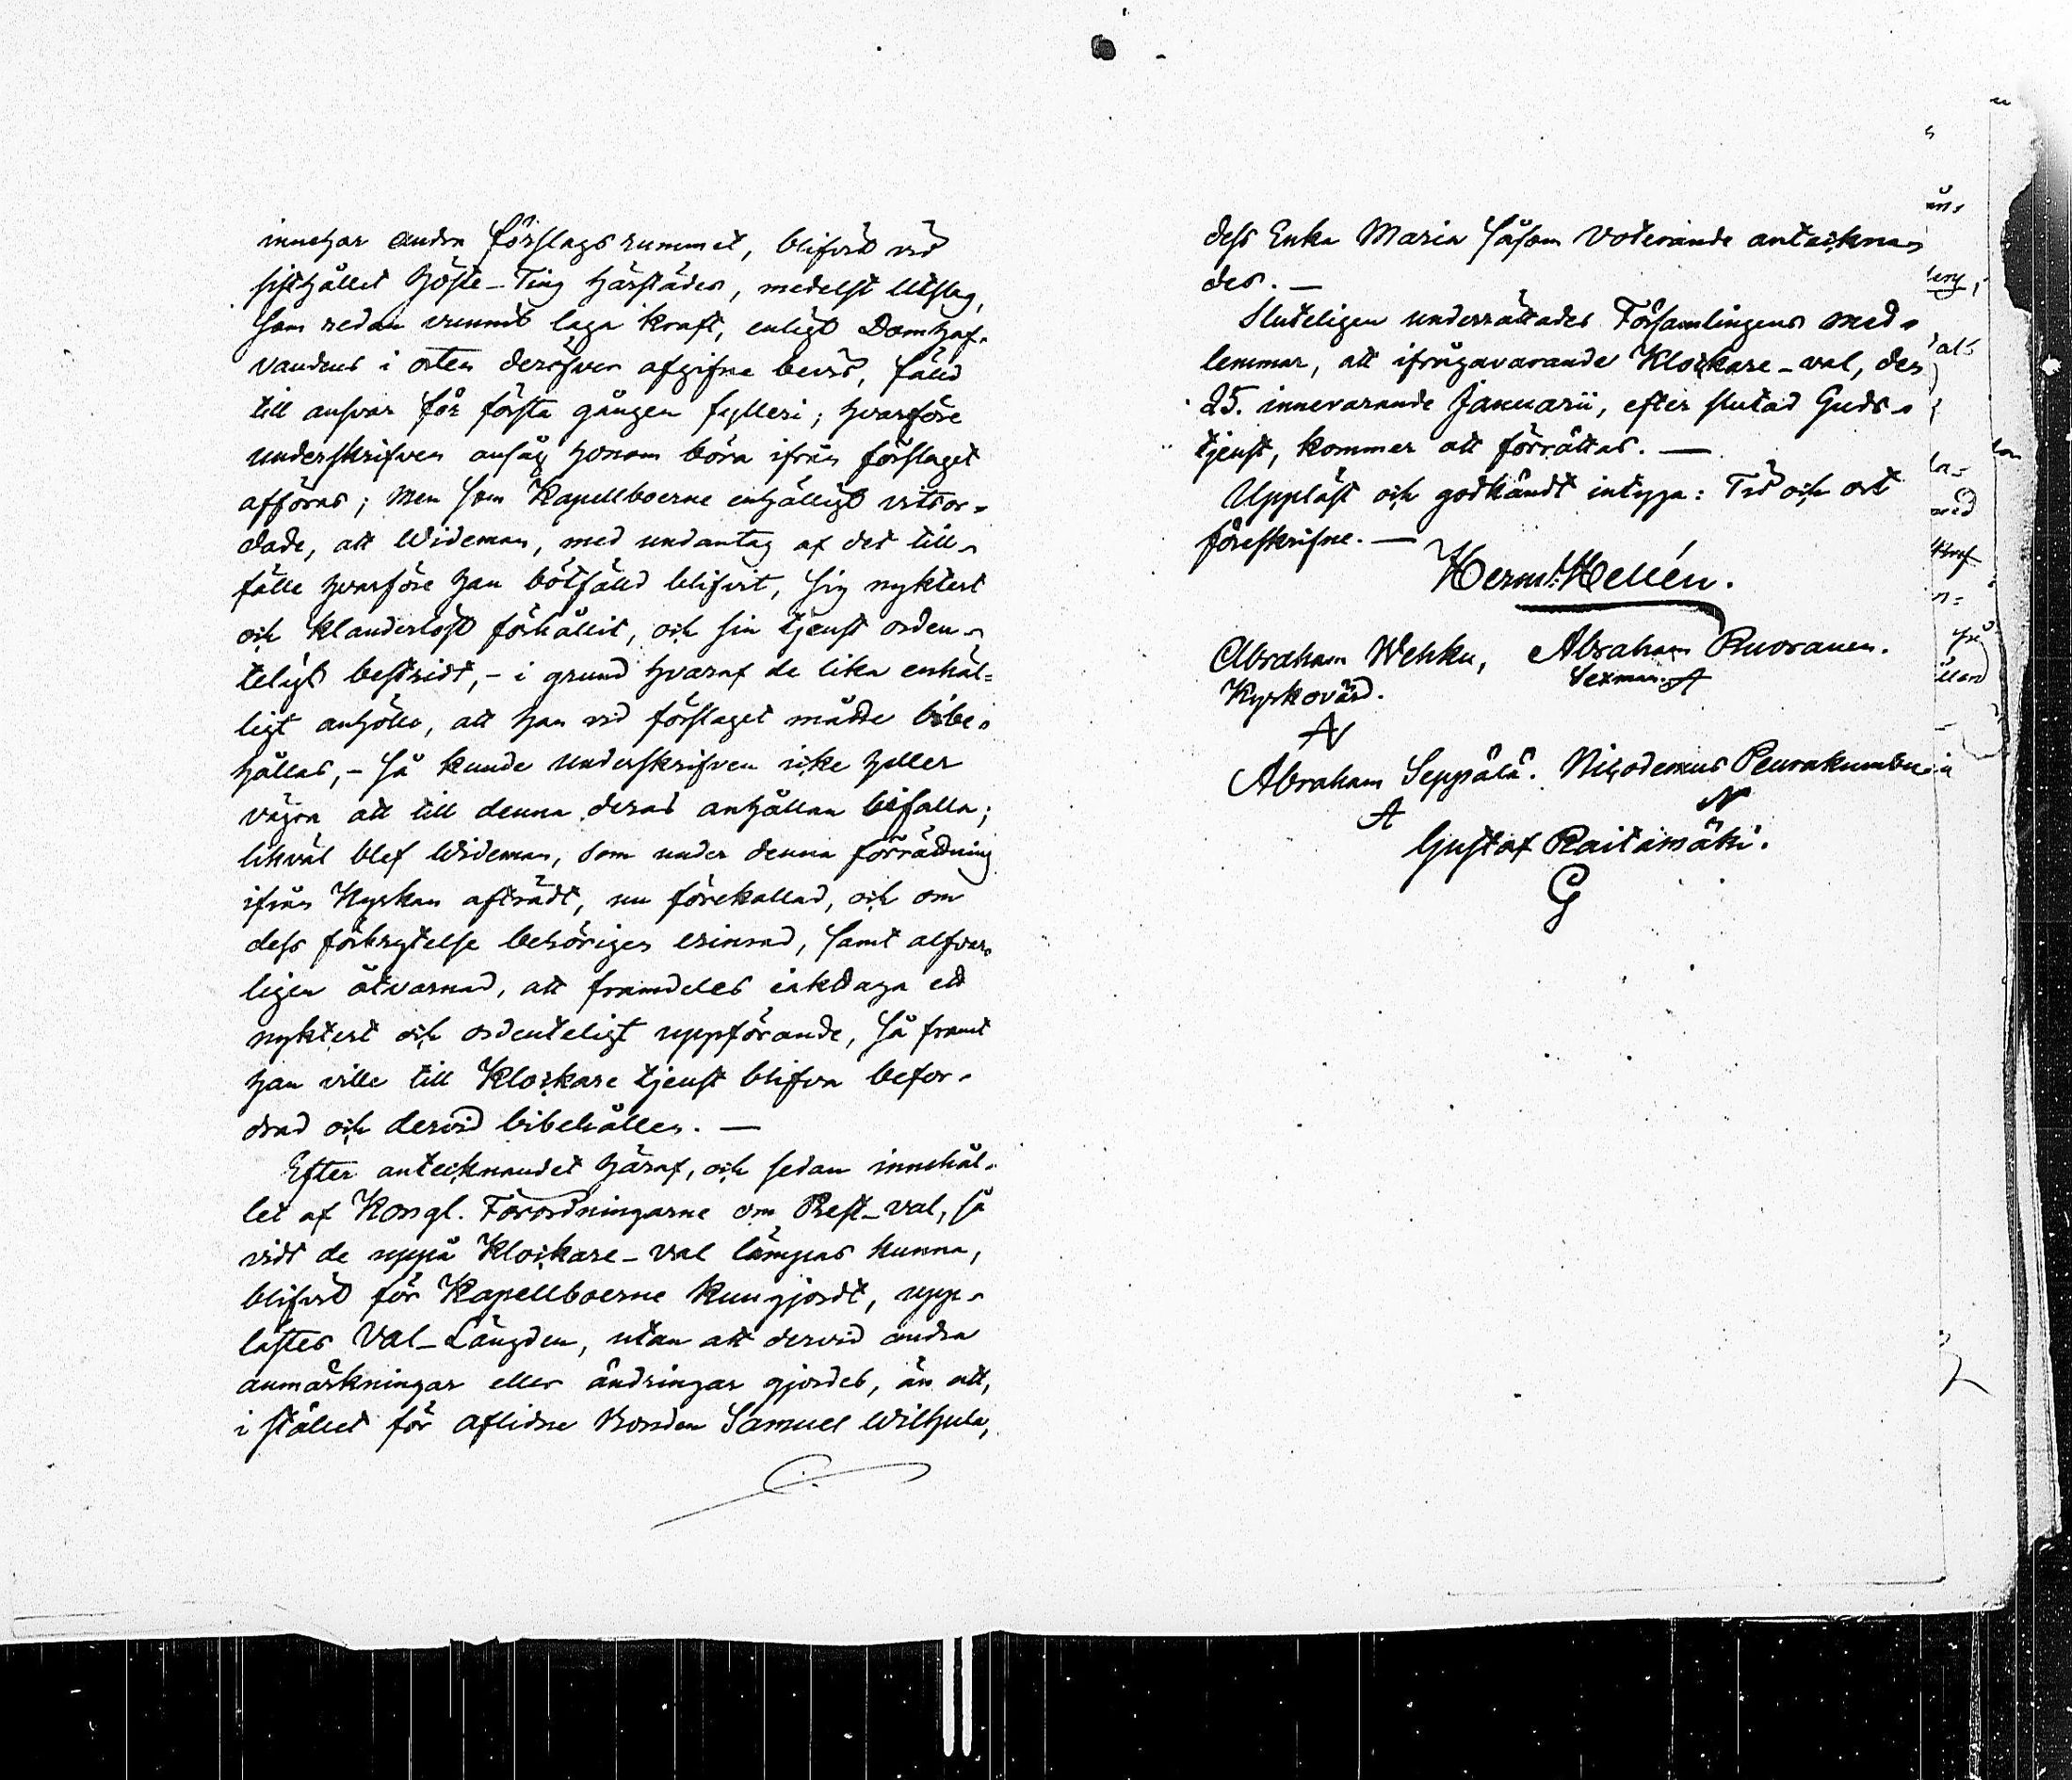 innehar andra förslagsrummet, blifvit vid
sisthållet Höste-Ting härstädes, medelst Utslag,
som redan vunnit laga kraft, enligt Domhaf-
vandens i orten deröfver afgifne bevis, fälld
till ansvar för första gången fylleri; hvarföre
underskrifven ansåg honom böra ifrån förslaget
afföras; men som Kapellboerne enhälligt vitsor-
dade, att Wideman, med undantag af det till-
fälle hvarföre han bötfälld blifvit, sig nyktert
och klanderlöst förhållit, och sin tjenst orden-
teligt bestridt, - i grund hvaraf de lika enhäl-
ligt anhöllo, att han vid förslaget måtte bibe-
hållas, - så kunde underskrifven icke heller
vägra att till denna deras anhållan bifalla;
likväl blef Wideman, som under denna förrättning
ifrån Kyrkan afträdt, nu förekallad, och om
dess förbrytelse behörigen erinrad, samt alfvar-
ligen åtvarnad, att framdeles iakttaga ett
nyktert och ordenteligt uppförande, så framt
han ville till Klockare tjenst blifva befor-
drad och dervid bibehållen. —
Efter antecknandet häraf, och sedan innehål-
let af Kongl. Förordningarne om Prest-val, så
vidt de uppå Klockare-val lämpas kunna,
blifvit för Kapellboerne kungjordt, upp-
lästes Val-Längden, utan att dervid andra
anmärkningar eller ändringar gjordes, än att,
i stället för aflidne Bonden Samuel Wilhula,
dess Enka Maria såsom voterande antackna-
des. —
Sluteligen underrättades Församlingens med-
lemmar, att ifrågavarande Klockare-val, den
25. innevarande Januarii, efter slutad Guds-
tjenst, kommer att förrättas. —
Uppläst och godkändt intyga: Tid och ort
föreskrifne. —
Herm: Hellén.
Abraham Wehku, Abraham Puoranen.
Kyrkovärd. Sexman. A
A
Abraham Seppälä. Nicodemus Peurakumbu
A N
Gustaf Raitamäki.
G